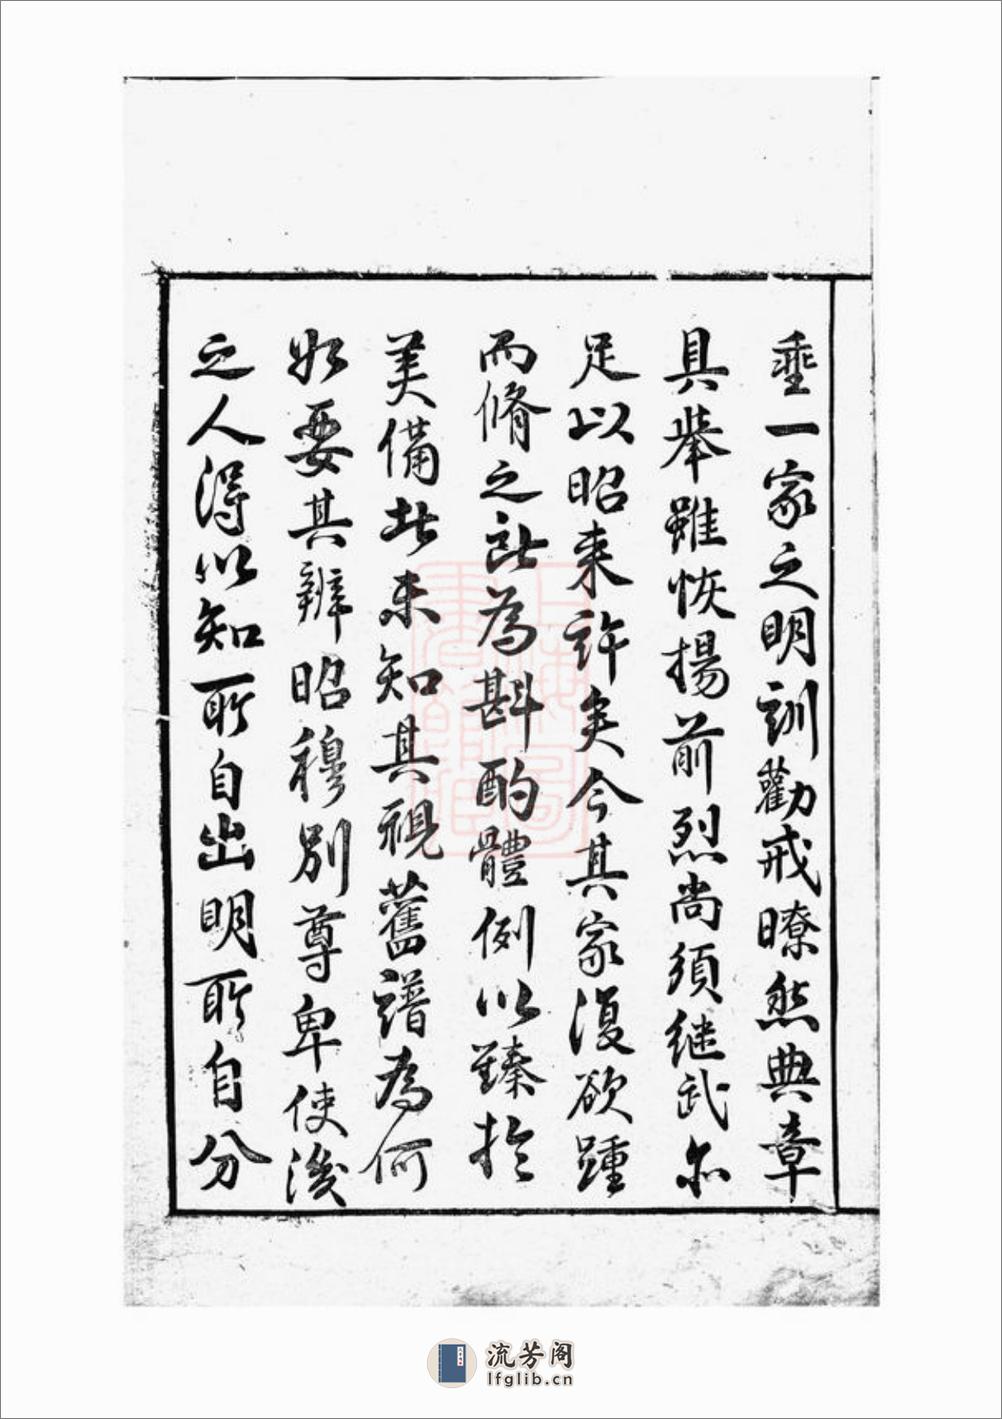 垂一家之明訓勸戒瞭然典章
具舉雖恢揚前烈尚須繼武亦
足以昭来許矣今其家復欲踵
而脩之所為斟酌體例以臻於
美備者未知其視舊譜為何
如要其辨昭穆別尊卑使後
之人得以知所自出明所自分
流芳阁
lfglib.cn